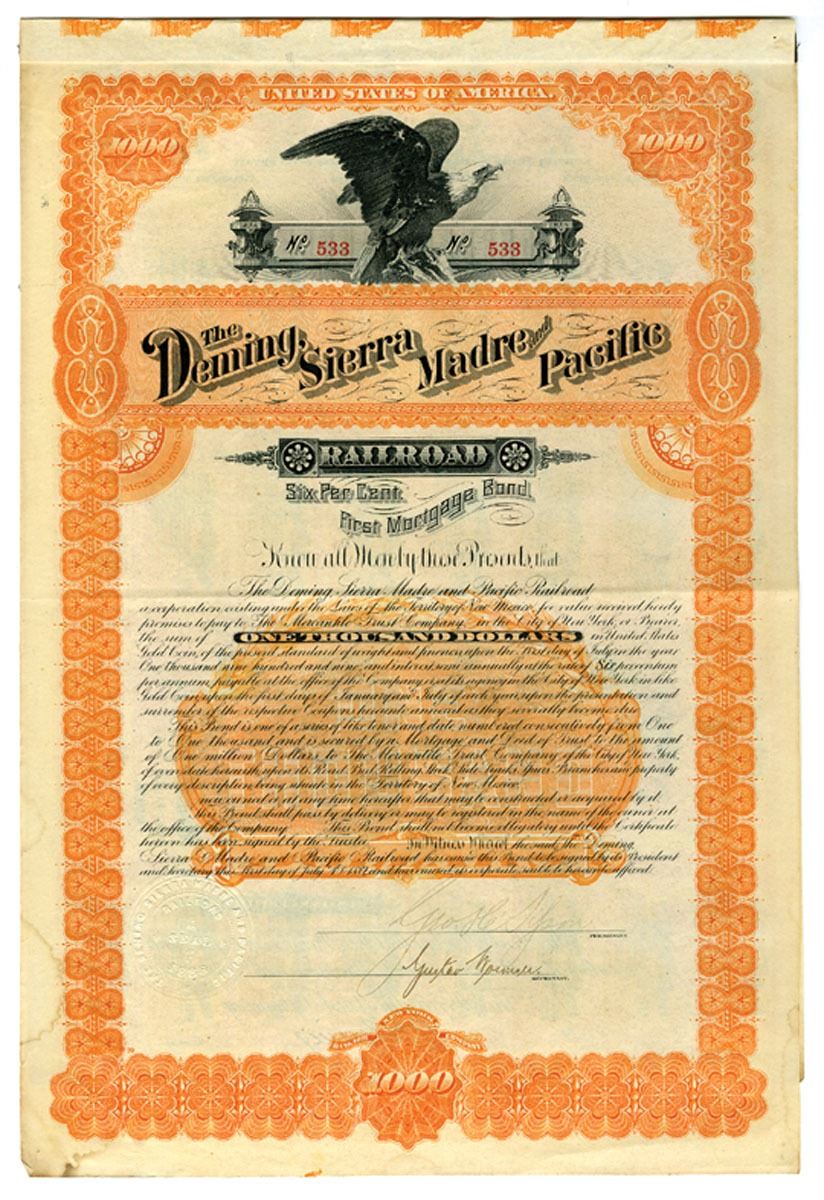 UNITED STATES OF AMERICA.
1000 1000
No. 533 No. 533
The Deming, Sierra Madre and Pacific
RAILROAD
Six Per Cent.
First Mortgage Bond.
Know all Men by these Presents, that
The Deming, Sierra Madre and Pacific Railroad
a corporation existing under the Laws of the Territory of New Mexico, for value received hereby
promises to pay to The Mercantile Trust Company, in the City of New York, or Bearer,
the sum of ONE THOUSAND DOLLARS in United States
Gold Coin, of the present standard of weight and fineness, upon the First day of July in the year
One thousand nine hundred and nine, and interest semi annually at the rate of Six per centum
per annum, payable at the office of the Company or at its agency in the City of New York in like
Gold Coin, upon the first days of January and July of each year, upon the presentation and
surrender of the respective Coupons hereunto annexed as they severally become due
This Bond is one of a series of like tenor and date, numbered consecutively from One
to One thousand and is secured by a Mortgage and Deed of Trust to the amount
of One million Dollars to The Mercantile Trust Company of the City of New York,
of even date herewith, upon its Road Bed, Rolling Stock, Side Tracks, Spurs, Branches and property
of every description being situate in the Territory of New Mexico
now owned or at any time hereafter that may be constructed or acquired by it
This Bond shall pass by delivery or may be registered in the name of the owner at
the office of the Company This Bond shall not become obligatory until the Certificate
hereon has been signed by the Trustee In Witness Whereof the said, the Deming,
Sierra Madre and Pacific Railroad has caused this Bond to be signed by its President
and Secretary this First day of July and has caused its corporate seal to be hereunto affixed.
PRESIDENT
Gustav
SECRETARY.
NEW YORK
BANK NOTE COMPANY
1000